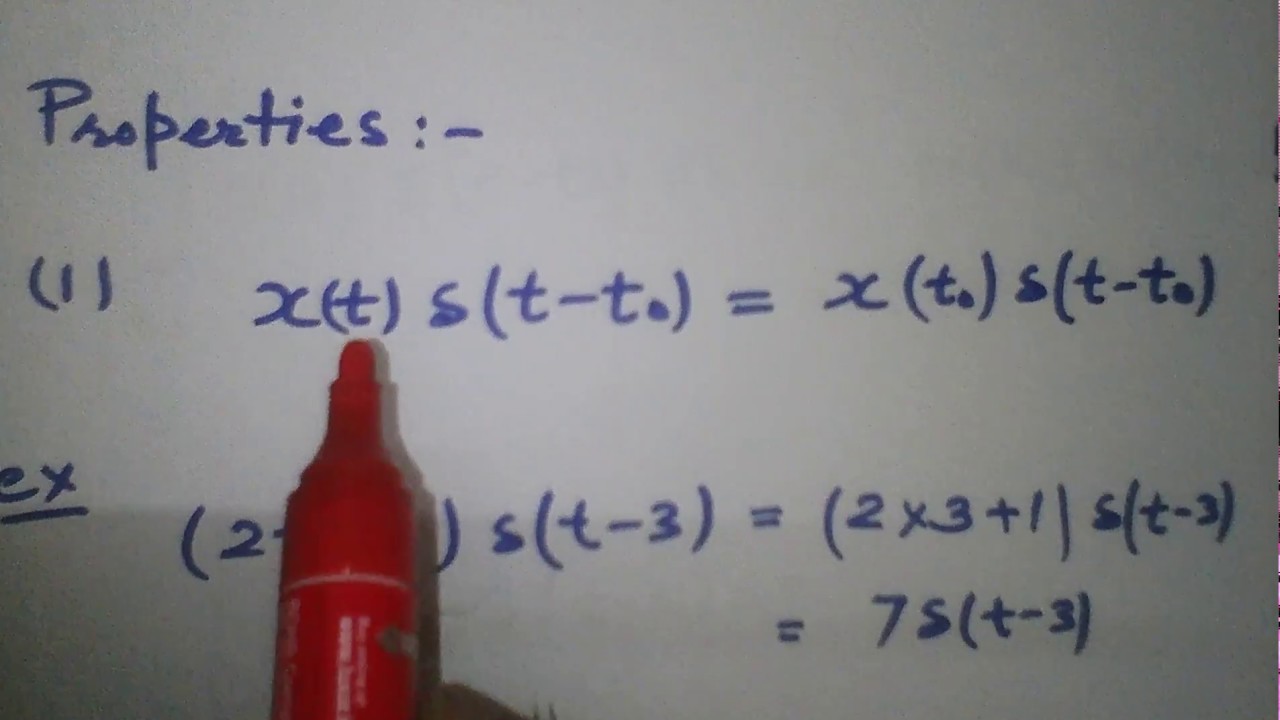 Properties :-
(1) x(t) δ(t-t₀) = x(t₀) δ(t-t₀)
ex (2 ) δ(t-3) = (2×3+1) δ(t-3)
= 7δ(t-3)